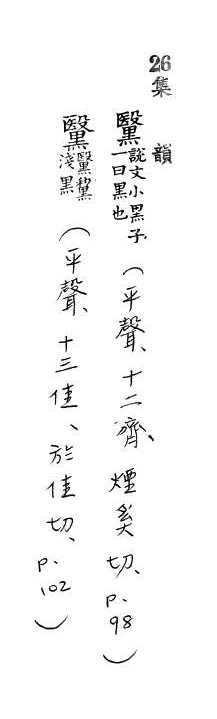 26 集韻
黳 說文小黑子 一曰黑也 (平聲、十二齊、煙奚切、p.98)
黳 黳 淺黑 (平聲、十三佳、於佳切、p.102)